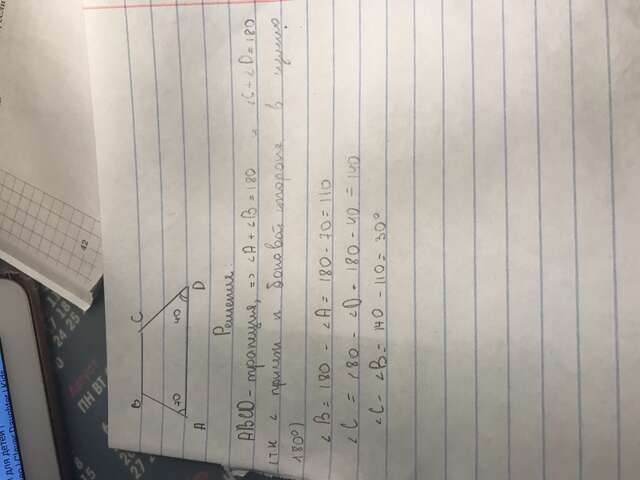 B C
70 40
A D
Решение
ABCD - трапеция, => ∠A + ∠B = 180 и ∠C + ∠D = 180
(т.к ∠ прилеж к боковой стороне в сумме
180°)
∠B = 180 - ∠A = 180 - 70 = 110
∠C = 180 - ∠D = 180 - 40 = 140
∠C - ∠B = 140 - 110 = 30°
42
Август
ПН ВТ
для детей